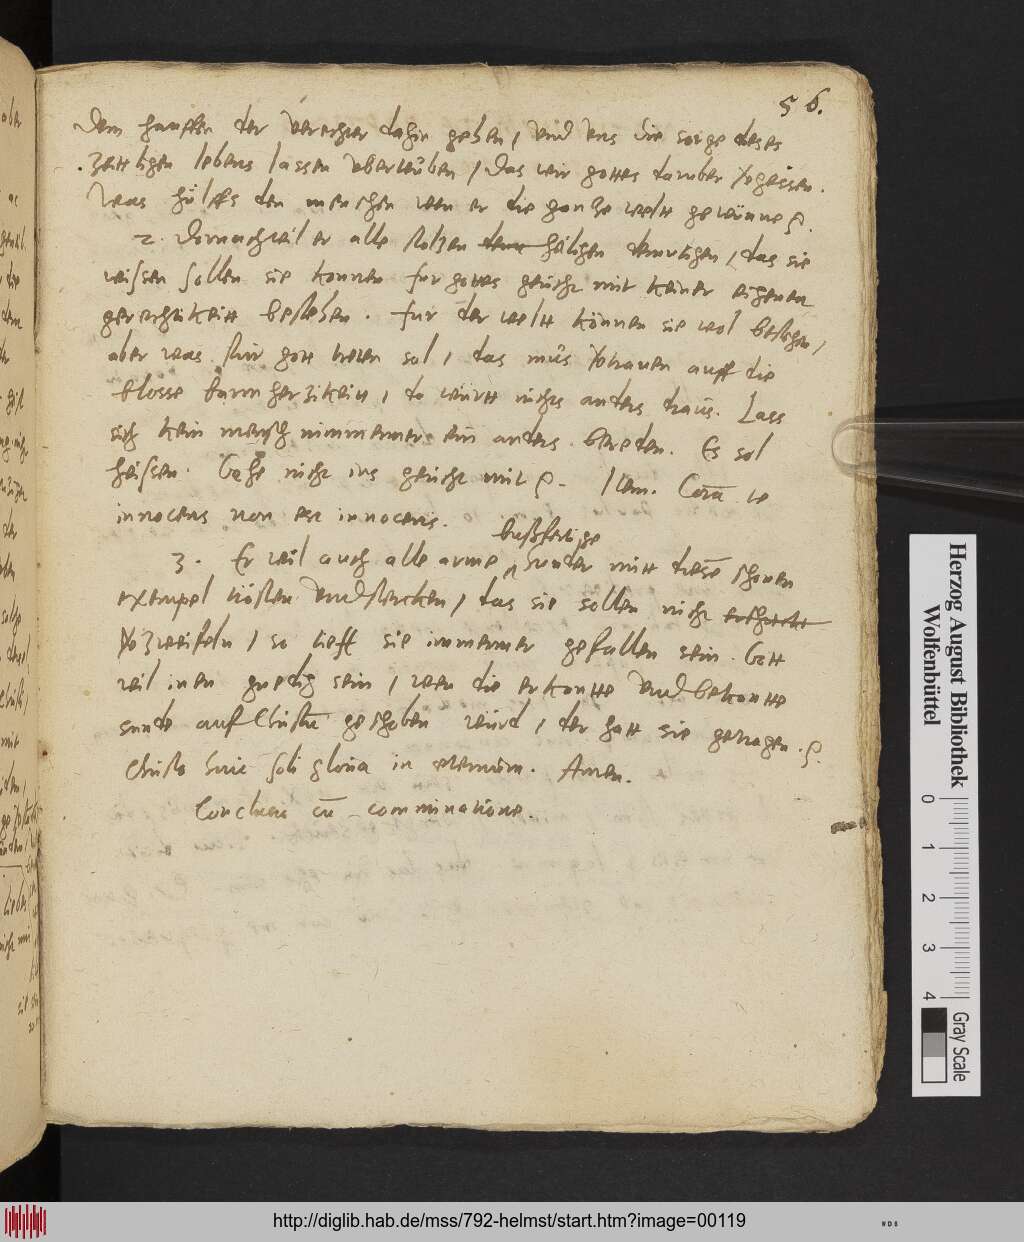 56.
dem hauffen der verechter dahin gehen, und uns die sorge deses
zeittligen lebens lassen uberteuben, das wir gottes daruber
was hülffs den menschen wen er die gantze weltt gewünne
2. Dornach wil er alle stoltzen heiligen demutigen, das sie
wissen sollen sie konnen fur gottes gericht mit keiner eigenen
gerechtikeitt bestehen. fur der weltt können sie wol bestehen,
aber was fur gott treten sol, das mus auff die
blosse barmhertzikeitt, do württ nichts anders traus. Lass
sich kein mensch nimmermer ein anders bereden. Es sol
heissen. Gehe nicht ins gericht mit Item. Corā te
innocens non est innocens.
bußfertige
3. Er wil auch alle arme sunder mitt diesē schonen
exempel trösten und stercken, das sie sollen nicht
zweifeln, so tieff sie immermer gefallen sein. Gott
wil inen gnedig sein, wen die erkantte und bekantte
sunde auf Christū geschoben würd, der hatt sie getragen.
Christo huic soli gloria in eternum. Amen.
cū comminatione.
Herzog August Bibliothek
Wolfenbüttel
0 1 2 3 4
Gray Scale
http://diglib.hab.de/mss/792-helmst/start.htm?image=00119